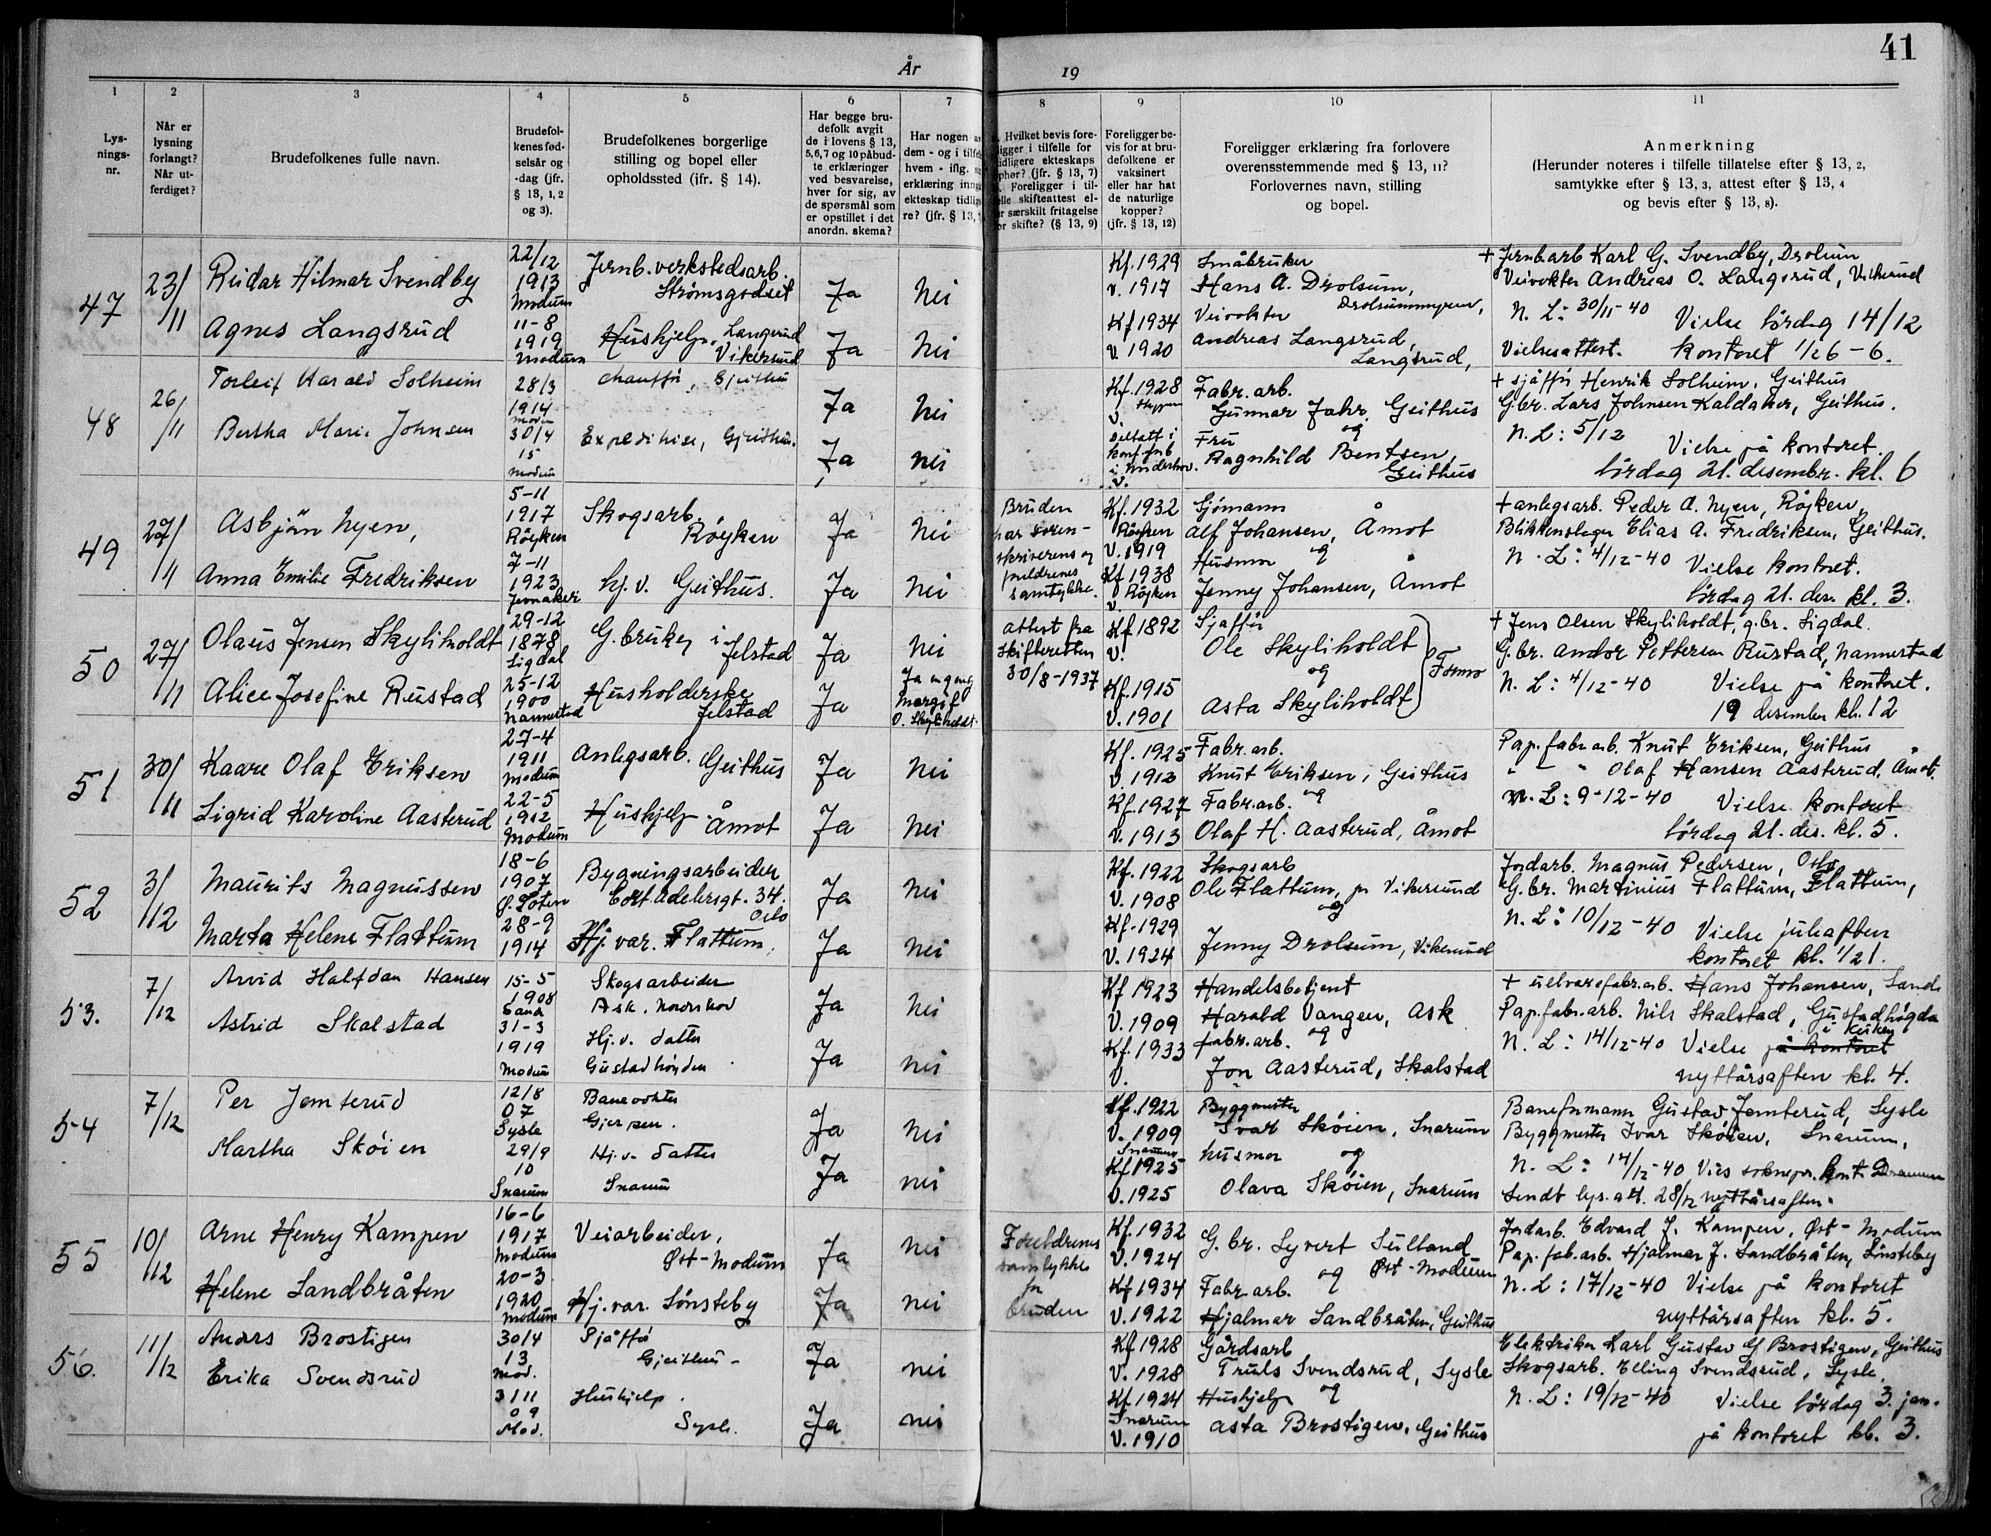 År
19
41
1
2
3
4
5
6
7
8
9
10
11
Lys-
nings-
nr.
Når er
lysning
forlangt?
Når ut-
ferdiget?
Brudefolkenes fulle navn.
Brudefol-
kenes fød-
selsår og
-dag (jfr.
§ 13, 1, 2
og 3).
Brudefolkenes borgerlige
stilling og bopel eller
opholdssted (ifr. § 14).
Har begge bru-
defolk avgit
de i lovens § 13,
5,6,7 og 10 påbud-
te erklæringer
ved besvarelse,
hver for sig, av
de spørsmål som
er opstillet i det
anordn. skema?
Har nogen
dem - og i
hvem - iflg.
erklæring
ekteskap
re? (jfr. § 13,
Hvilket bevis fore-
ligger i tilfelle for
tidligere ekteskaps
ophør? (jfr. § 13, 7)
Foreligger i til-
skifteattest el-
særskilt fritagelse
for skifte? (§ 13, 9)
Foreligger be-
vis for at bru-
defolkene er
vaksinert
eller har hat
de naturlige
kopper?
(jfr. § 13, 12)
Foreligger erklæring fra forlovere
overensstemmende med § 13, 11?
Forlovernes navn, stilling
og bopel.
Anmerkning
(Herunder noteres i tilfelle tillatelse efter § 13, 2,
samtykke efter § 13, 3, attest efter § 13, 4
og bevis efter § 13, 8).
47
23/11
Reidar Hilmar Svendby
22/12
1913
Modum
Jernb.verkstedsarb.
Strømsgodset
Ja
Nei
Kf. 1929
v. 1917
Småbruker
Hans A. Drolsum,
Drolsummyren,
+ Jernbarb Karl G. Svendby, Drolsum
Veivokter Andreas O. Langsrud, Vikersund
Agnes Langsrud
11-8
1919
Modum
Hushjelp, Langsrud
Vikersund
Ja
Nei
Kf 1934
V. 1920
Veivokter
Andreas Langsrud,
Langsrud,
N. L: 30/11-40 Vielse lördag 14/12
Vielsesattest. Kontoret 1/2 6-6.
48
26/11
Torleif Harald Solheim
28/3
1914
Modum
Chauffør, Gjeithus
Ja
Nei
Kf. 1928
V.
Fabr. arb.
Gunnar Jahr, Geithus
+ sjåffør Henrik Solheim, Geithus
G.br. Lars Johnsen Kaldager, Geithus.
Bertha Marie Johnsen
30/4
15
Modum
Expeditrise, Gjeithus.
Ja
Nei
deltatt i
V.
og
Fru
Ragnhild Bentsen,
Geithus
N. L: 5/12 Vielse på kontoret.
lördag 21. desembr. kl. 6
49
27/11
Asbjörn Nyen,
5-11
1917
Röyken
Skogsarb.
Röyken
Ja
Nei
Bruden
har soren-
skriverens og
foreldrenes
samtykke.
Kf. 1932
Röyken
V. 1919
Sjömann
Alf Johansen, Åmot
+ anlegsarb. Peder A. Nyen, Röyken,
Blikkenslager Elias A. Fredriksen, Geithus.
Anna Emilie Fredriksen
7-11
1923
Jevnaker
Hj.v. Geithus.
Ja
Nei
Kf 1938
Röyken
V.
Husmor og
Jenny Johansen, Åmot
N. L: 4/12-40 Vielse kontoret.
lördag 21. des. kl. 3.
50
27/11
Olaus Jensen Skyliholdt
29-12
1878
Sigdal
G.bruker i
Jelstad
Ja
Nei
Attest fra
skifteretten
30/8-1937
Kf 1892
V.
Sjåffør
Ole Skyliholdt
og
Fosmo
+ Jens Olsen Skyliholdt, g.br. Sigdal.
G.br. Andor Pettersen Rustad, Nannestad
Alice Josefine Rustad
25-12
1900
Nannestad
Husholderske
Jelstad
Ja
Ja engang
O. Skyliholdt.
Kf. 1915
V. 1901
Asta Skyliholdt
N. L: 4/12-40 Vielse på kontoret.
19 desember kl. 12
51
30/11
Kaare Olaf Eriksen
27-4
1911
Modum
Anlegsarb. Geithus
Ja
Nei
Kf. 1925
V. 1913
Fabr. arb.
Knut Eriksen, Geithus
Pap.fabr arb. Knut Eriksen, Geithus
" " " Olaf Hansen Aasterud, Åmot.
Sigrid Karoline Aasterud
22-5
1912
Modum
Hushjelp Åmot
Ja
Nei
Kf. 1927
V. 1913
Fabr. arb. og
Olaf H. Aasterud, Åmot
N. L: 9-12-40 Vielse kontoret
lördag 21. des. kl. 5.
52
3/12
Maurits Magnussen
18-6
1907
Ø. Toten
Bygningsarbeider
Cort Adelersgt. 34.
Oslo
Ja
Nei
Kf. 1922
V. 1908
Skogsarb
Ole Flattum, pr Vikersund
og
Jordarb. Magnus Pedersen, Oslo
G.br. Martinius Flattum, Flattum,
Marta Helene Flattum
28-9
1914
Hj. var. Flattum.
Ja
Nei
Kf. 1929
V. 1924
Jenny Drolsum, Vikersund
N. L: 10/12-40 Vielse juleaften
kontoret kl. 1/2 1.
53.
7/12
Arvid Halfdan Hansen
15-5
1908
Sand
Skogsarbeider
Ask, Norderhov
Ja
Nei
Kf 1923
V. 1909
Handelsbetjent
Harald Vangen, Ask
+ ullvarefabr.arb. Hans Johansen, Sande
Pap.fabr.arb. Nils Skalstad, Gustadhögda
Astrid Skalstad
31-3
1919
Modum
Hj.v. datter
Gustadhøyden
Ja
Nei
Kf. 1933
V.
fabr.arb. og
Jon Aasterud, Skalstad
N. L: 14/12-40 Vielse på kontoret i kirken
nyttårsaften kl. 4.
54
7/12
Per Jemterud
12/8
07
Sysle
Banevokter
Gjerpen.
Ja
Nei
Kf. 1922
V. 1909
Byggmester
Ivar Skøien, Snarum
Baneformann Gustav Jemterud, Sysle
Byggmester Ivar Skøien, Snarum,
Martha Skøien
29/9
10
Snarum
Hj.v. datter
Snarum
Ja
Nei
Snarum
Kf 1925
V. 1925
husmor og
Olava Skøien, Snarum
N. L: 14/12-40 Vies sokнepr. kont. Drammen
Sendt lys.att. 28/12 nyttårsaften.
55
10/12
Arne Henry Kampen
16-6
1917
Modum
Veiarbeider,
Øst-Modum
Ja
Nei
Foreldrenes
samtykke
for
bruden
Kf. 1932
V. 1924
G. br. Syvert Sulland
og Øst-Modum
Jordarb. Edvard J. Kampen, Øst-Modum
Pap.fab.arb. Hjalmar J. Sandbråten, Sönsteby
Helene Sandbråten
20-3
1920
Modum
Hj.var. Sönsteby
Ja
Nei
Kf 1934
V. 1922
Fabr. arb.
Hjalmar Sandbråten, Geithus
N. L: 17/12-40 Vielse på kontoret
nyttårsaften kl. 5.
56.
11/12
Anders Brostigen
30/4
13
Mod.
Sjåffør
Gjeithus -
Ja
Nei
Kf 1928
V. 1928
Gårdsarb
Truls Svendsrud, Sysle
Elektriker Karl Gustav G Brostigen, Geithus
Skogsarb. Elling Svendsrud, Sysle.
Erika Svendsrud
31 11
09
Mod.
Hushjelp.
Sysle.
Ja
Nei
Kf 1924
Snarum
V. 1910
Hushjelp og
Asta Brostigen, Geithus
N. L: 19/12-40 Vielse lördag 3. jan.
på kontoret kl. 3.